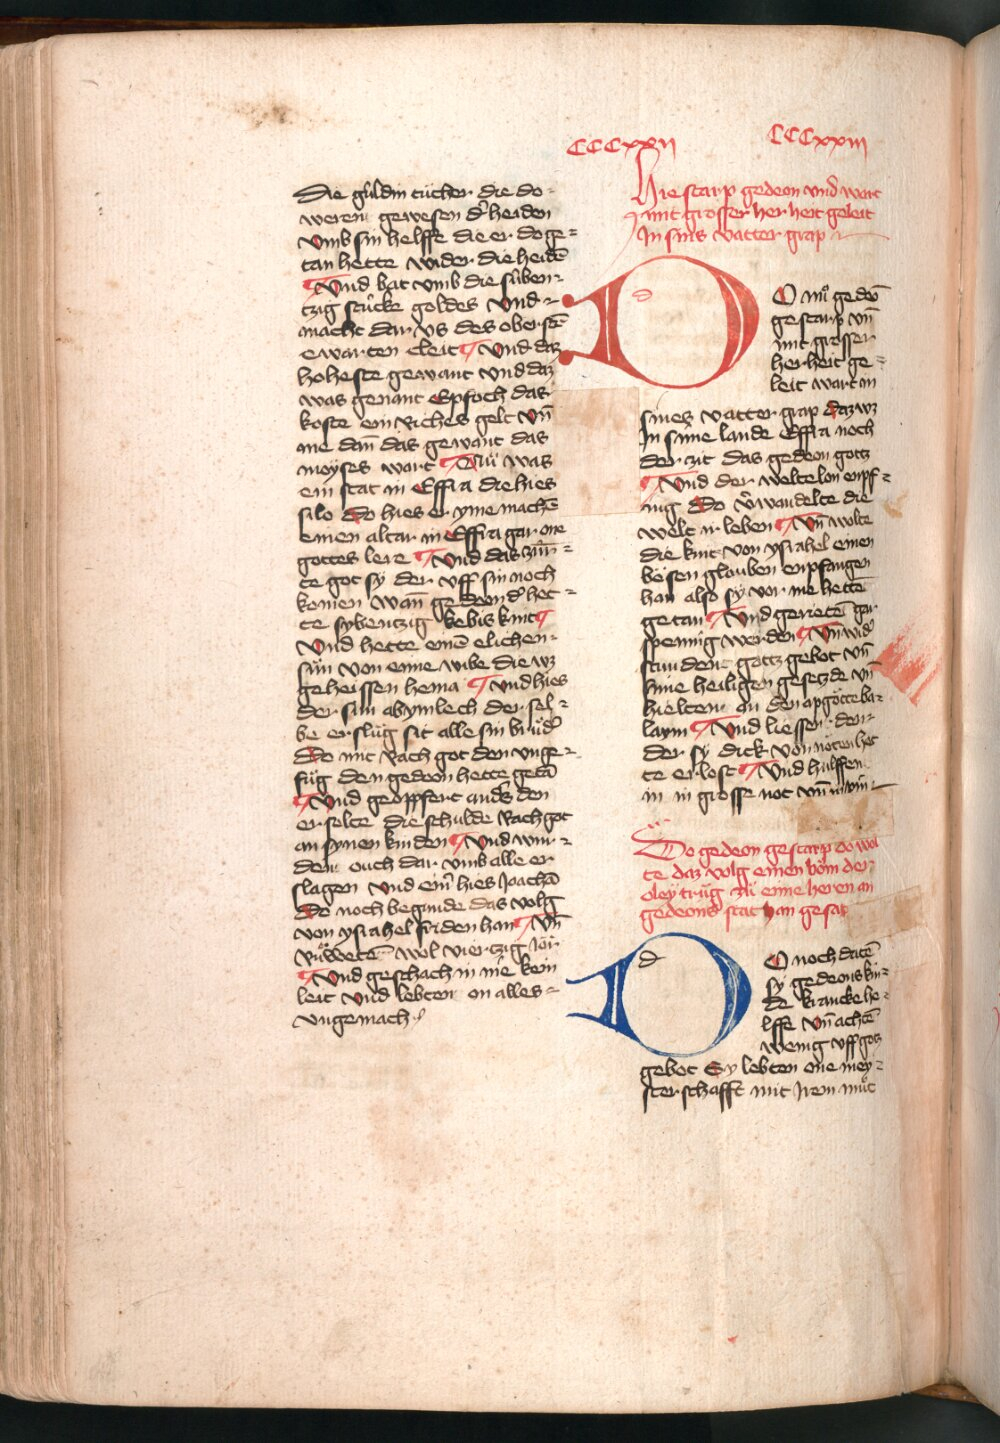 CCCxxii
CCCxxiii
Die guldin tücher die do
weren gewesen d' heiden
Vmb sin helffe die er do ge=
tan hette wider die heidē
¶ Vnd bat vmb die süben
tzig stücke goldes Vnd
macht dar vs des oberstē
ewarten cleit ¶ Vnd daz
hoheste gewant Vnd daz
was genant Epfoch das
koste ein Riches gelt vn̄
me dan̄ das gewant das
moyses wart ¶ Nu was
ein stat in Effra die hies
silo do hies er yme machē
einen altar in Effra gar one
gottes lere ¶ Vnd das zür=
te got sy der vff sin noch
komen wan̄ gedeon d' het
te sybentzig kebis kint ¶
Vnd hette einē elichen
sün von eime wibe die wz
geheissen hema ¶ Vnd hies
der sun abymlech der sel=
be erslüg sit alle sin brüd'
Do mit Rach got den vnge=
füg den gedeon hette getā
¶ Vnd geopfert anders den
er solte die schulde Rach got
an synen kinden ¶ Vnd wur
den ouch dar vmb alle er
slagen Vnd ein' hies Joachā
Do noch begunde das volg
von ysrahel friden han ¶ Vn̄
Ruwetē wol viertzig Jor
¶ Vnd geschach in nie kein
leit Vnd lebten on alles
vngemach
Hie starp gedeon vnd wart
mit grosser herheit geleit
In sins vatter grap
O nu gedeō
gestarp vn̄
mit grosser
herheit ge=
leit wart in
sines vatter grap daz wz
In sime lande Effra noch
der zit das gedeon gotz
¶ Vnd der welte lon enpf=
ing Do v'wandelte die
welt ir leben ¶ Vn̄ wolte
die kint von ysrahel einen
bösen glouben enpfangen
han also sy vor me hettē
getan ¶ Vnd gerietē gar
spennig werden ¶ Vn̄ wid'
stundent gottz gebot vn̄
sine heiligen gesetzde vn̄
hielten an den apgötte ba=
laym ¶ Vnd liessen den
der sy dick von nöten het
te erlost ¶ Vnd hulffen
in in grosse not vn̄
Do gedeon gestarp do wol
te daz volg einen böm der
oley trüg zü eime heren an
gedeons stat han gesat
d
O noch dātē
sy gedeons kin=
de krancke he=
lffe Vn̄ achtē
wenig vff gotz
gebot Sy lebten one mey=
sterschafft mit Irem müt